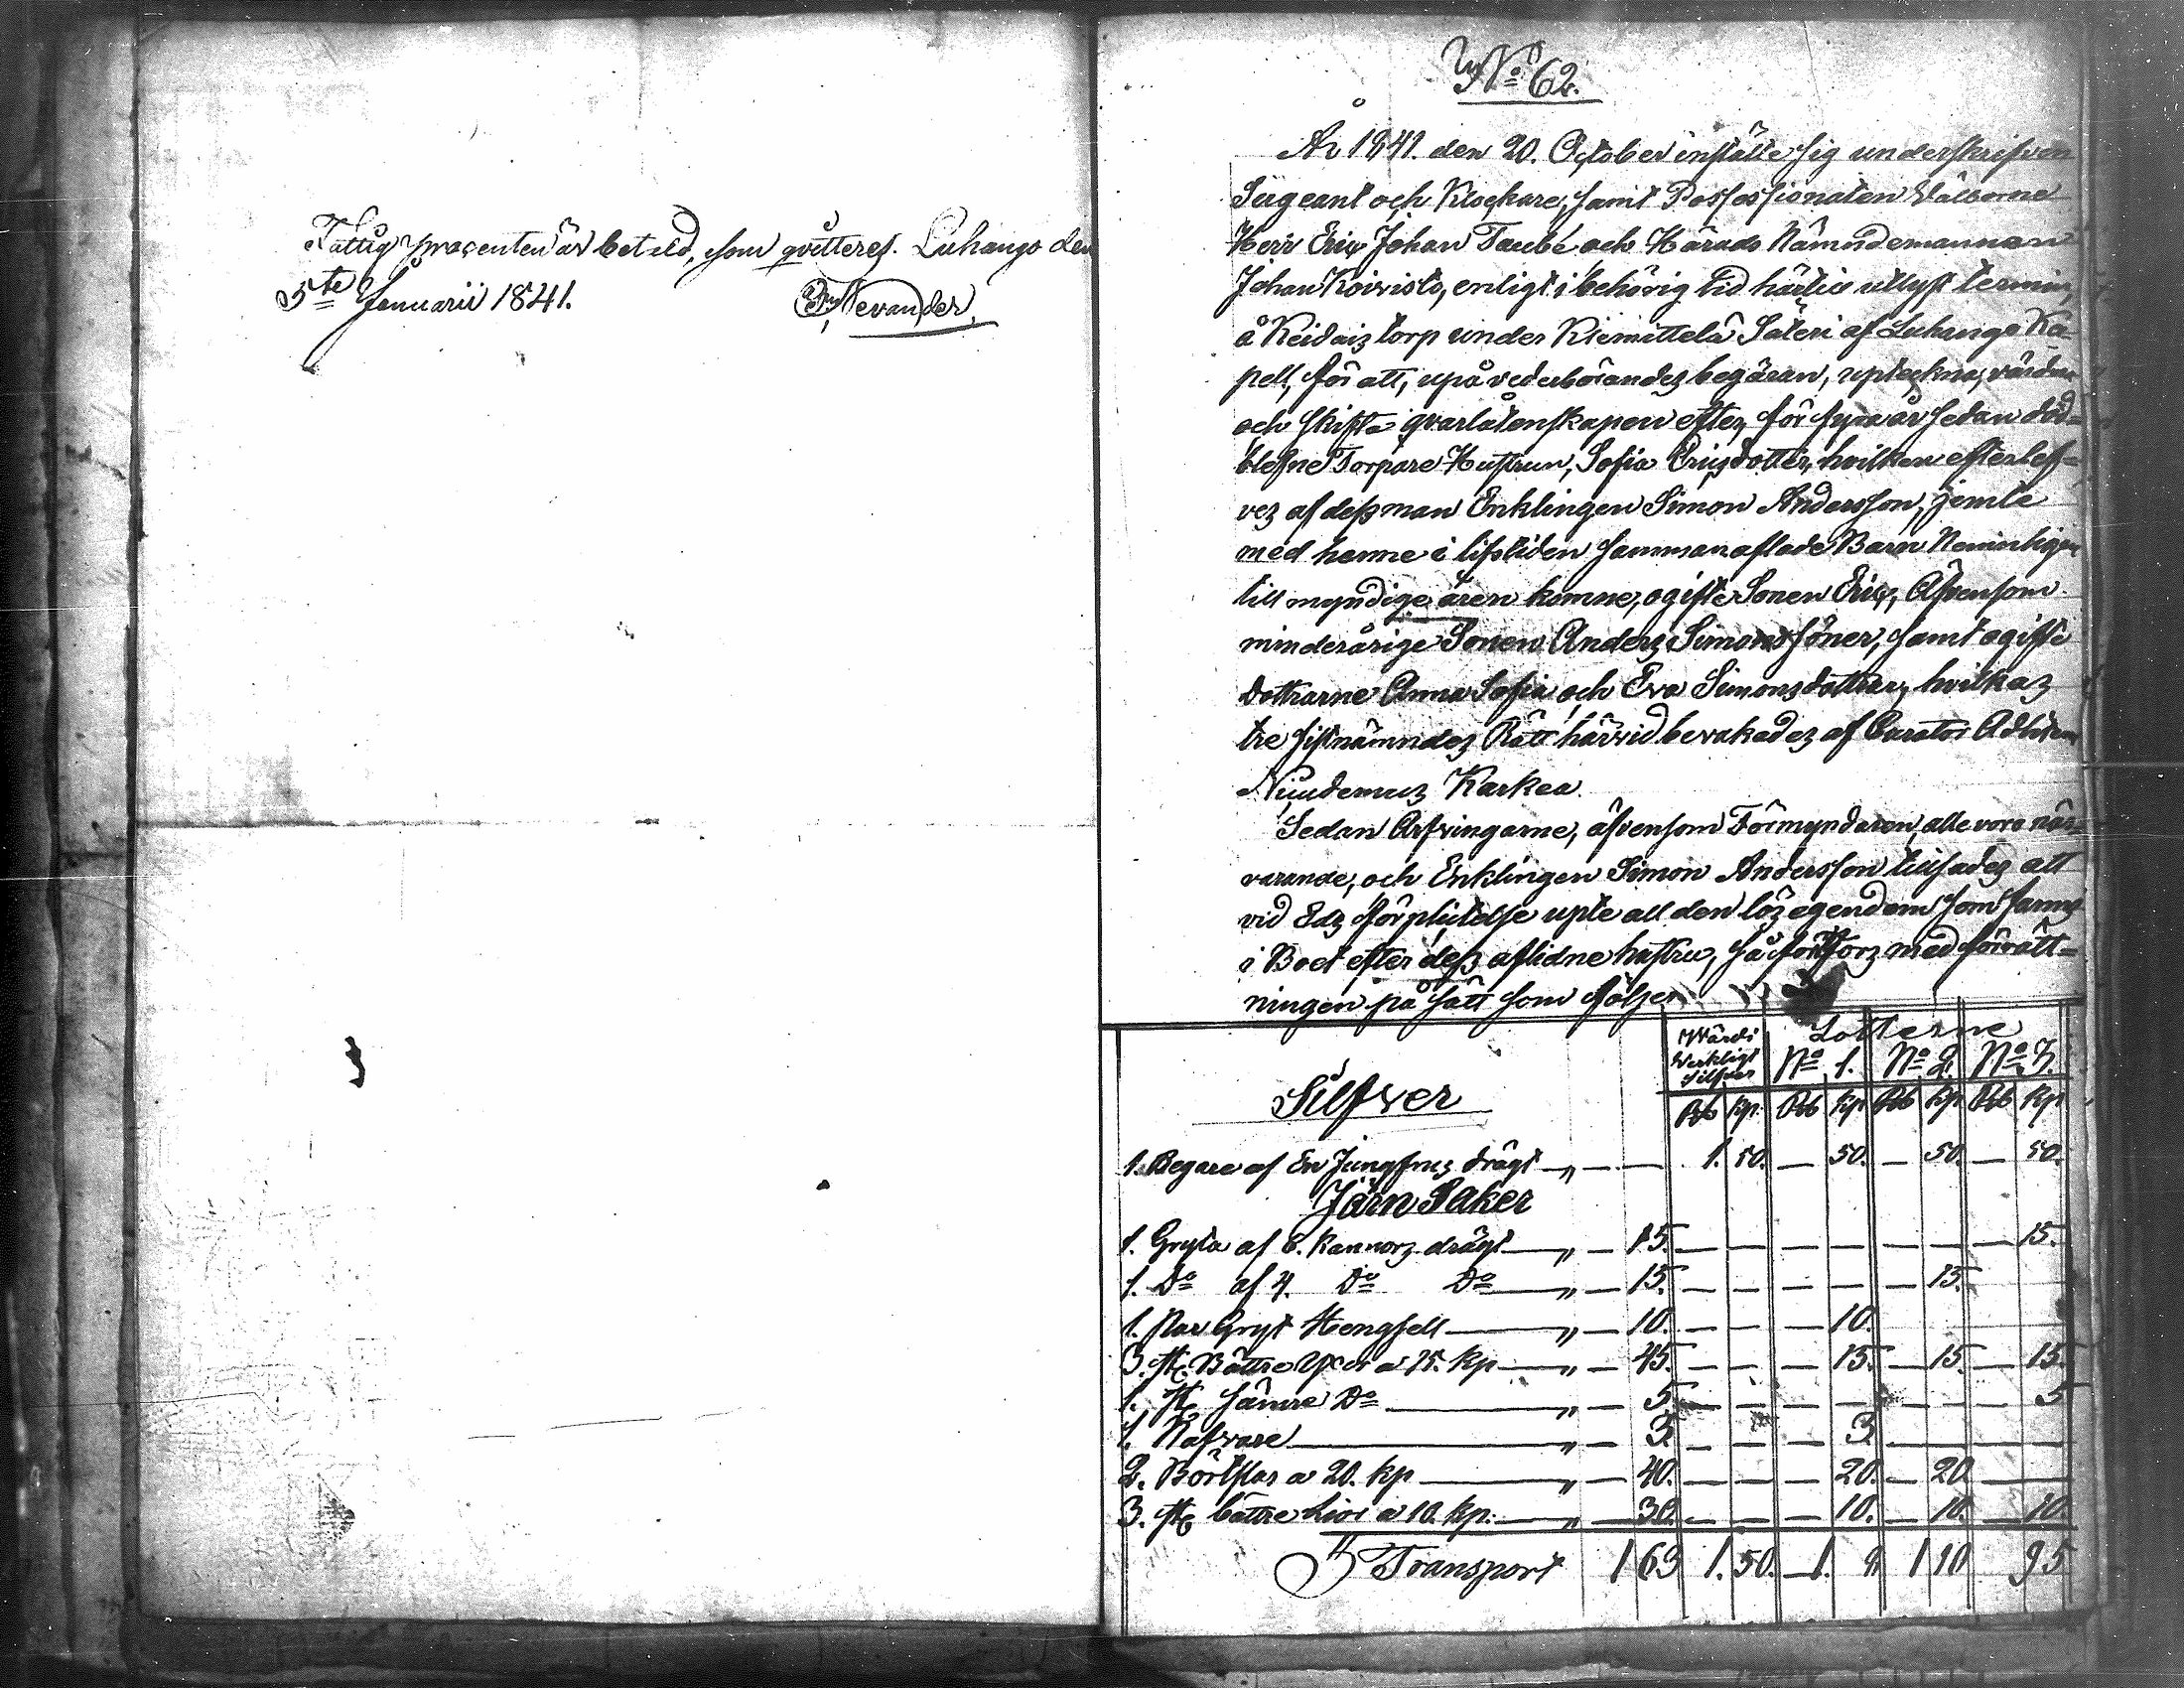 Fattig procenten är betald, som qvitteres. Luhango den
5te Januarii 1841. Nevander.
No 62.
År 1841. den 20. October instälte sig underskrifven
Sergeant och Klockare, samt Possessionaten Välborne
Herr Eric Johan Taube och Härads Nämndemannen
Johan Koivisto, enligt i behörig tid härtill utlyst termin,
å Keidais torp under Klemittelä Säteri af Luhango Ka-
pell, för att, uppå vederbörandes begäran, upteckna, värdera
och skifta qvarlåtenskapen efter, för fyra år sedan död-
blefne Torpare Hustrun, Sofia Ericsdotter, hvilken efterlef-
ves af dess man Enklingen Simon Andersson, jemte
med henne i lifstiden sammanaflade Barn Nemligen
till myndige åren komne, ogifte Sonen Eric, Äfvensom
minderårige Sonen Anders Simonssöner, samt ogifte
dottrarne Anna Sofia och Eva Simonsdöttrar, hvilkas
tre sistnämndes Rätt härvid bevakades af Curator Adlitem
Karkea
Sedan Arfvingarne, äfvensom Förmyndaren, alle voro när-
varande, och Enklingen Simon Andersson tillsades att
vid Eds förplictelse upte all den lös egendom som fanns
i Boet efter dess aflidne hustru, så fortfors med förrätt-
ningen på sätt som följer
Silfver Wärdi Werkligt Silfver Lotterne No 1. No 2. No 3.
Rb kp. Rb kp Rb kp Rb kp
1. Begare af En Jungfrus drägt „ 1. 50. 50. 50. 50.
Järn Saker
1. Gryta af 6. kannors drägt „ 15. 15.
1. Do af 4. Do Do „ 15. 15.
1. Par Gryt Hengsell „ 10. 10.
3. st. Bättre Yxor a 15. kp „ 45. 15. 15. 15.
1. st. sämre Do „ 5. 5
1. Nafvare „ 3. 3.
2. a 20. kp „ 40. 20. 20
3. st. bättre Liar a 10. kp. „ 30. 10. 10. 10.
Transport 1 63 1. 50. 1. 8 1 10 95